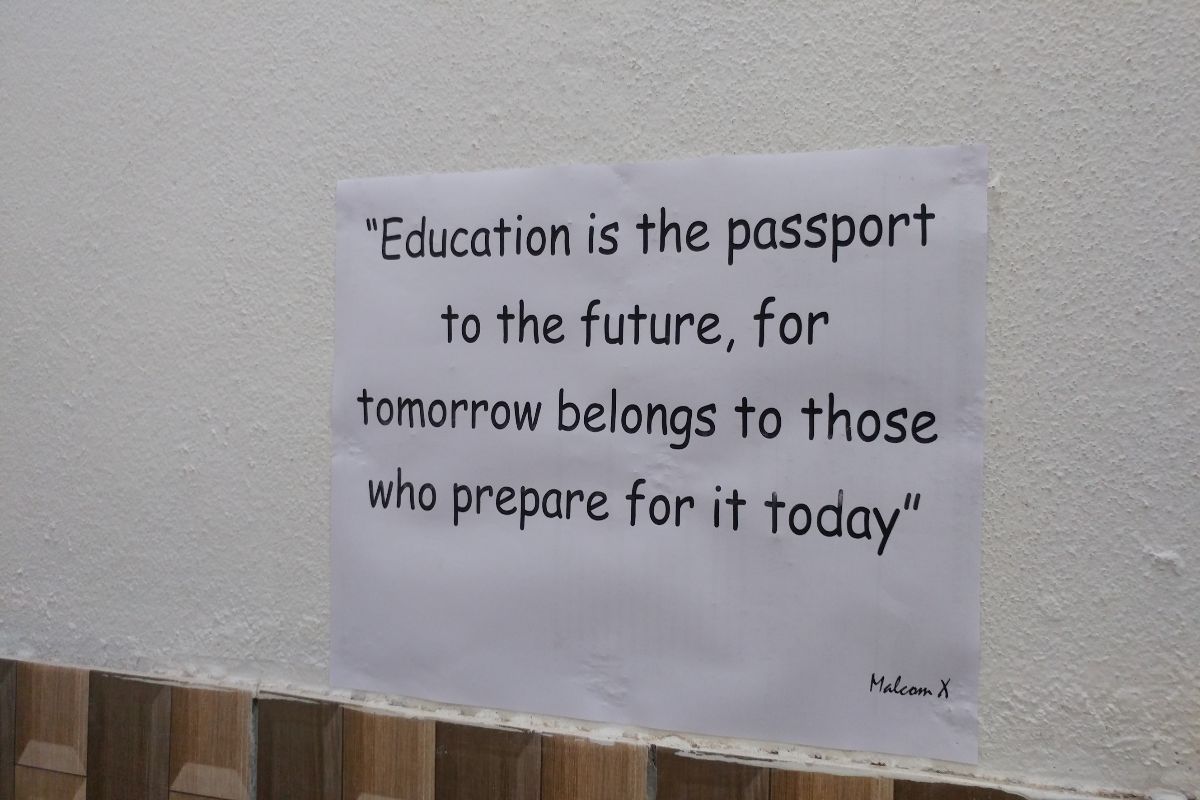 "Education is the passport
to the future, for
tomorrow belongs to those
who prepare for it today"
Malcom X